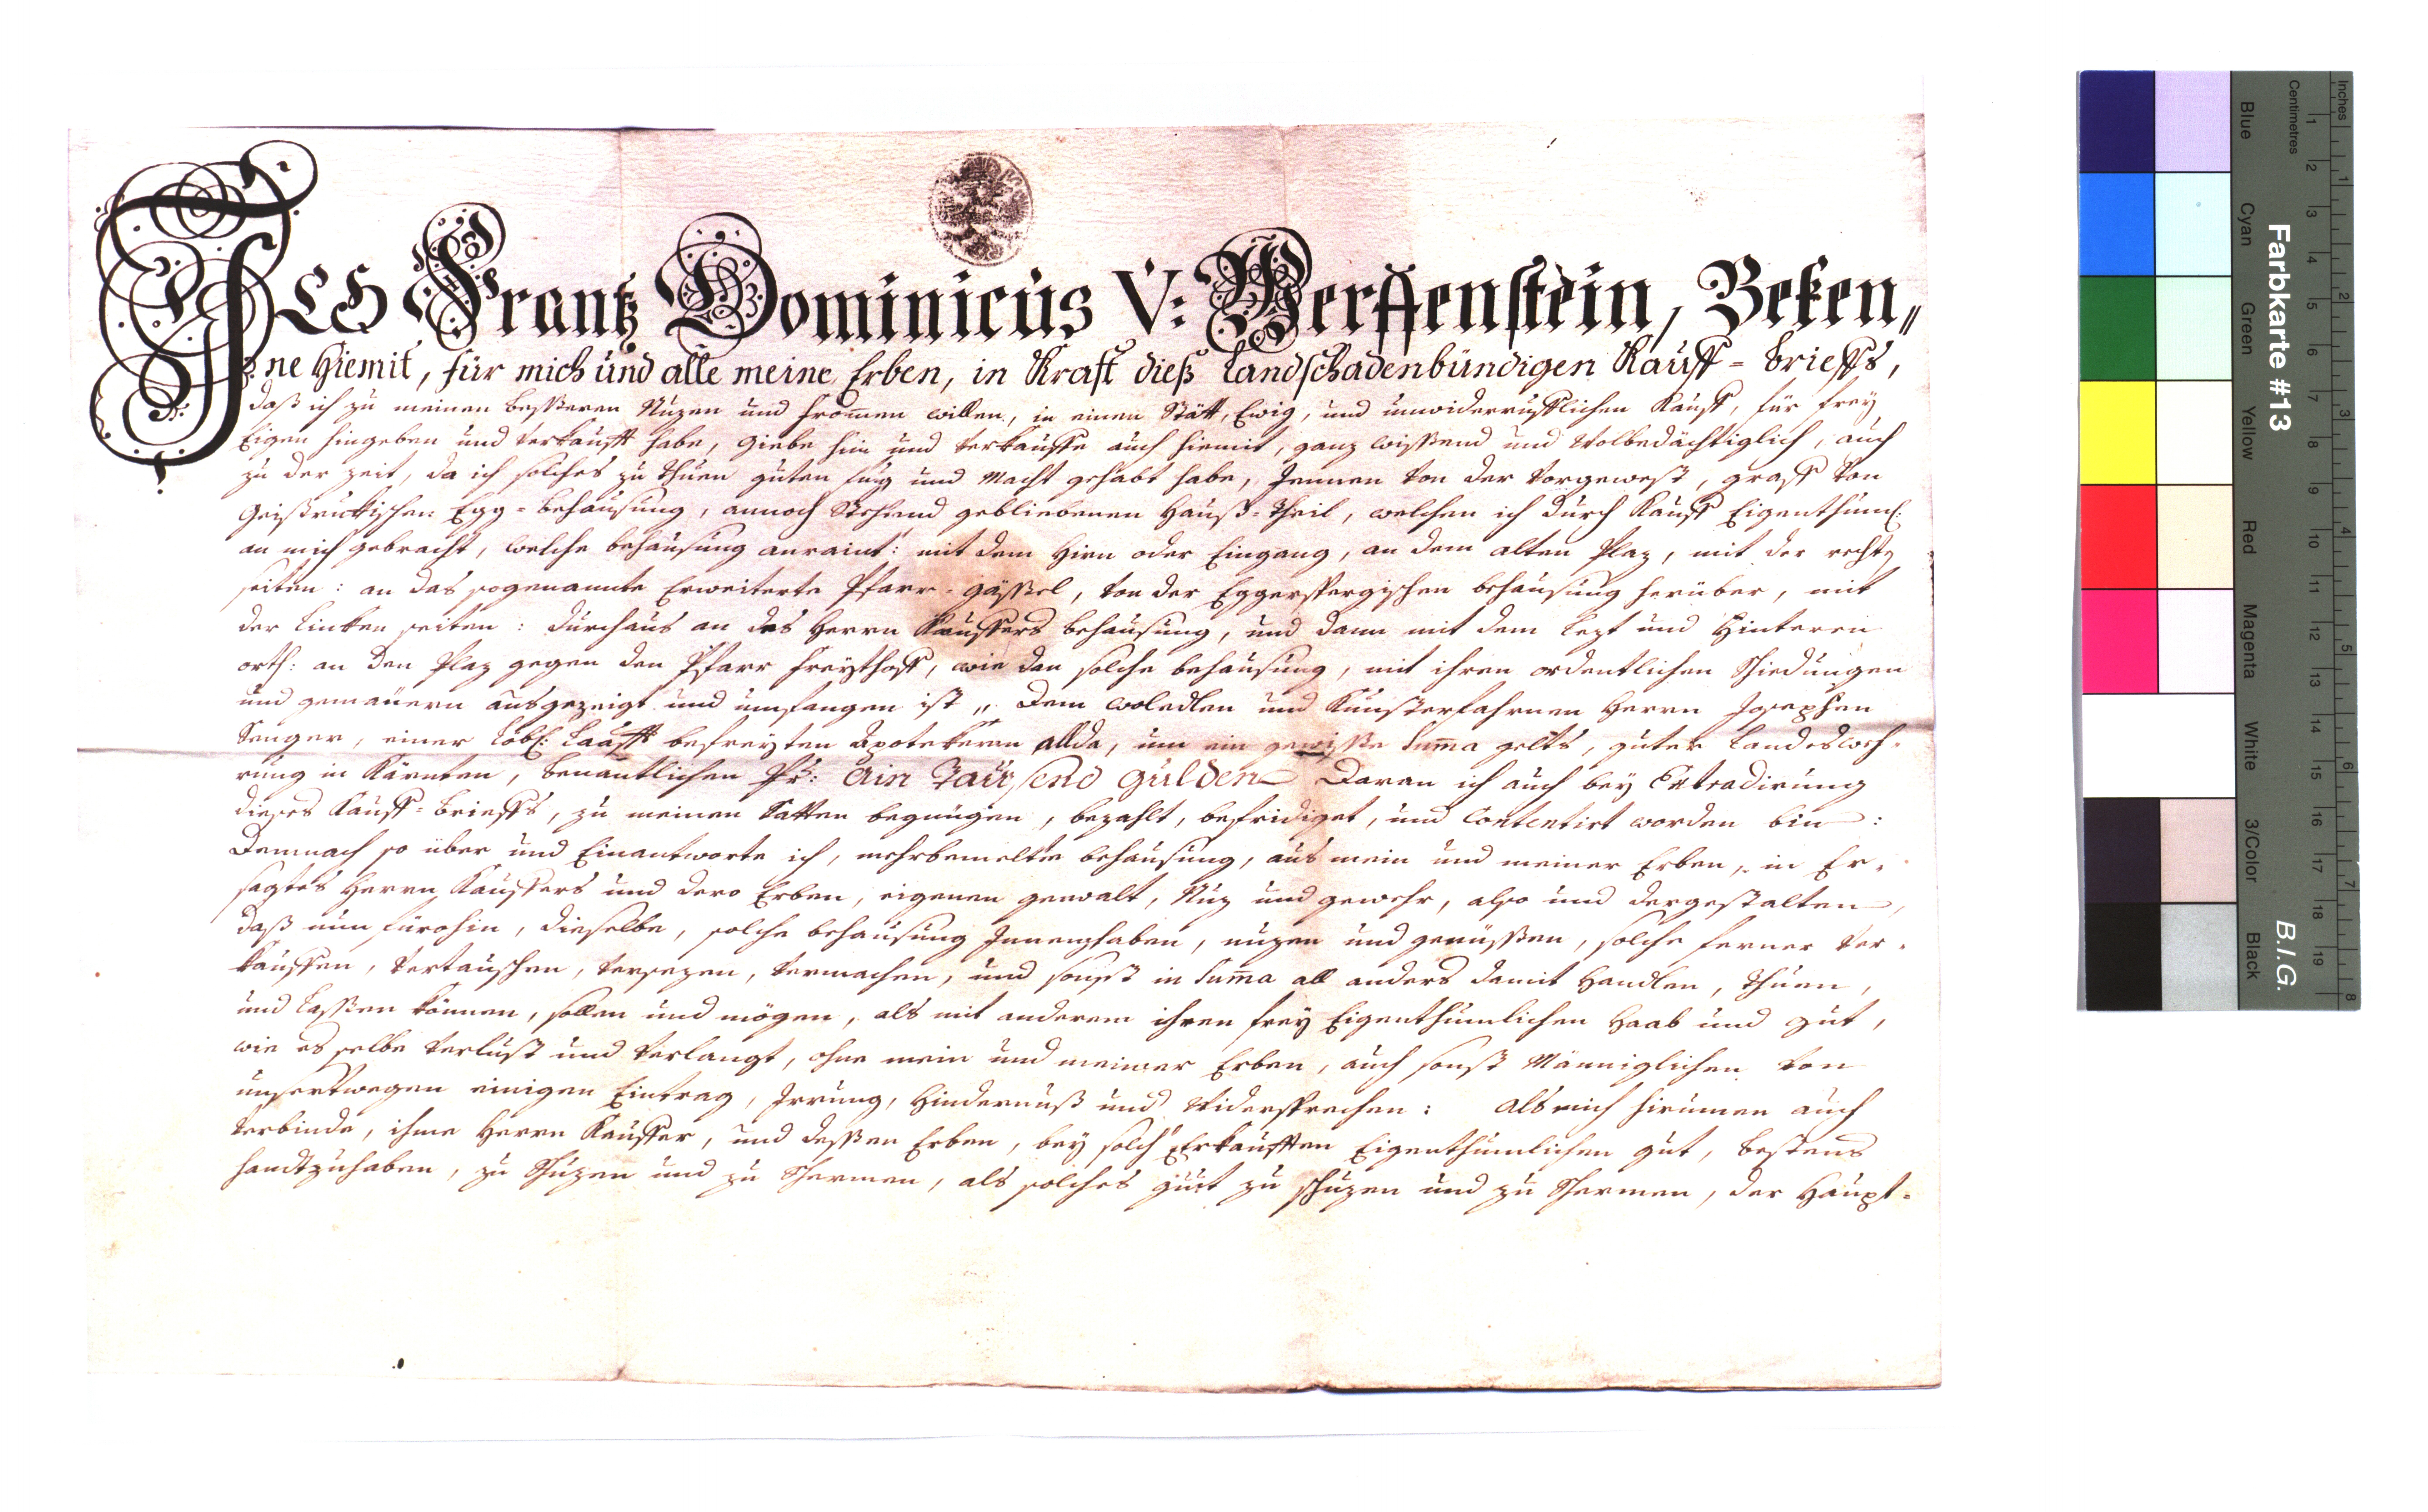 ICH Frantz Dominicus V: Werffenstein, Beken„
ne hiemit, für mich und alle meine Erben, in Krafft dieß Landschadenbündigen Kauff-briefs,
daß ich zu meinen besseren Nuzen und frommen willen, in einen Stätt, Ewig, und unwiderrufflichen Kauff, für frey
Eigen hingeben und verkaufft habe, Giebe hin und verkauffe auch hiemit, ganz wissend und Wolbedächtiglich, auch
zu der Zeit, da ich solches zu thuen guten fug und Macht gehabt habe, Jennen von der vorgewest, graff von
Geißruckischen Egg-behausung, annoch Stehend gebliebenen Hauß-theil, welchen ich durch Kauff Eigenthuml:
an mich gebracht, welche behausung anraint: mit dem Hirn oder Eingang, an dem alten Plaz, mit der recht
seiten: an das sogenannte Erweiterte Pfarr-gässel, von der Eggerspergischen behausung herüber, mit
der Linken seiten: durchaus an des Herrn Kauffers behausung, und dann mit dem Lezt und Hinteren
orth: an den Plaz gegen den Pfarr freythoff, wie dan solche behausung, mit ihren ordentlichen Schiedungen
und gemäuern ausgezeigt und umfangen ist „ Dem woledlen und Kunsterfahrnen Herrn Josephen
Senger, einer Löbl: Laafft befreyten Apotekern allda, um ein gewisse Suma gelts, guter Landesweh-
rung in Kärnten, benantlichen Pr: Ain Tausend Gulden Daran ich auch bey Extradirung
dieses Kauff-briefs, zu meinen Satten begnügen, bezahlt, befridiget, und Contentirt worden bin:
Demnach so über und Einantworte ich, mehrbemelte behausung, aus mein und meiner Erben, in Er-
sagtes Herrn Kauffers und dero Erben, eigenen gewalt, Nuz und gewehr, also und dergestalten,
daß nun fürohin, dieselbe, solche behausung Innenzhaben, nuzen und genüssen, solche ferner ver-
kauffen, vertauschen, versezen, vermachen, und sonst in Suma all anders damit Handlen, thuen,
und Lassen können, sollen und mögen, als mit anderem ihren frey Eigenthumlichen Haab und gut,
wie es selbe verlust und verlangt, ohne mein und meiner Erben, auch sonst Männiglichen von
unsertwegen einigen Eintrag, Irrung, Hindernuß und Widersprechen: Als mich hirumen auch
verbinde, ihme Herrn Kauffer, und dessen Erben, bey solch Erkaufften Eigenthumlichen gut, bestens
handtzuhaben, zu Schuzen und zu Schermen, als solches gut zu schuzen und zu Schermen, der Haupt-
Farbkarte #13
B.I.G.
Inches
Centimetres
1 2 3 4 5 6 7 8
1 2 3 4 5 6 7 8 9 10 11 12 13 14 15 16 17 18 19
Blue
Cyan
Green
Yellow
Red
Magenta
White
3/Color
Black